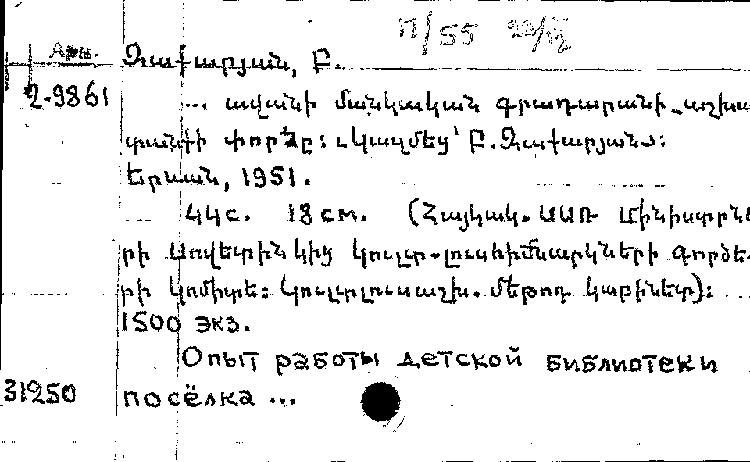 П/55
Арм. Զաքարյան, Բ.
2-9861 ... ավանի մանկական գրադարանի աշխա
տանքի փորձը: Կազմեց՝ Բ. Զաքարյանը:
Երևան, 1951.
44с. 18см. (Հայկակ. ՍՍՌ Մինիստրնե
րի Սովետին կից կուլտ-լուսհիմնարկների գործե
րի կոմիտե: Կուլտլուսաշխ. մեթոդ կաբինետ):
1500 экз.
Опыт работы детской библиотеки
31250 посёлка ...